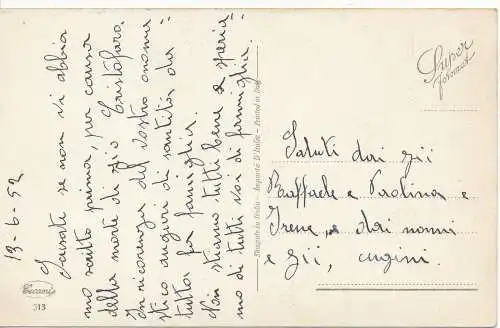 13-6-52
Scusate se non vi abbia
mo scritto prima, per causa
della morte di zio Cristofaro.
In ricorrenza del vostro onoma
stico auguri di santità da
tutta la famiglia.
Noi stiamo tutti bene e speria
mo di tutti voi di famiglia.
Saluti dai zii
Raffaele e Paolina e
Irene, e dai nonni
e zii, cugini.
Super
fotocrom
Stampato in Italia - Importé D'Italie - Printed in Italy
Cecami
313